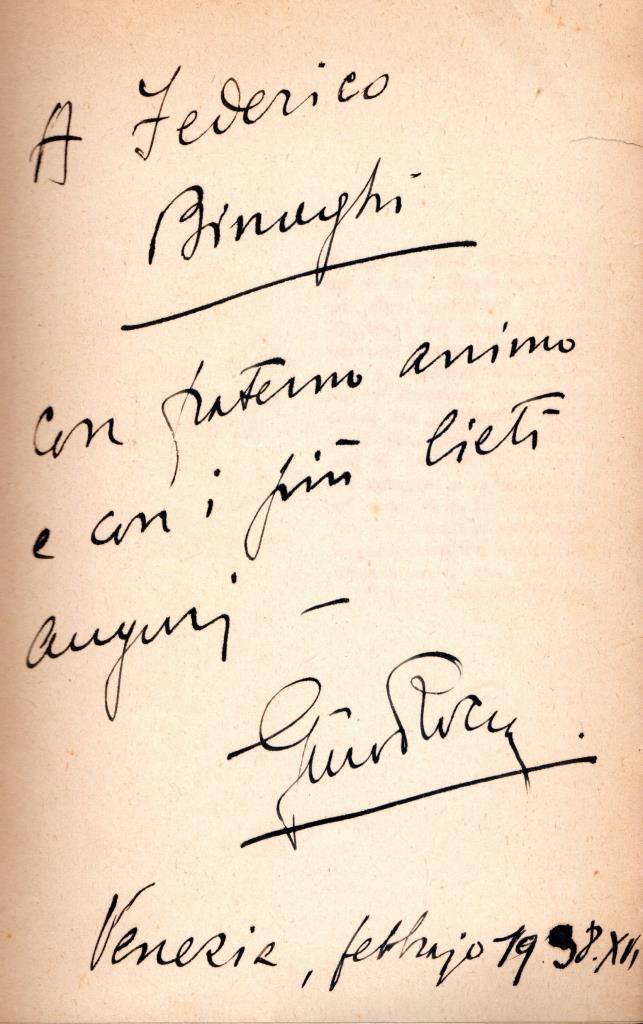 A Federico
Binaghi
con fraterno animo
e con i più lieti
augurj –
Gino Rocca.
Venezia, febbrajo 1938.XVI